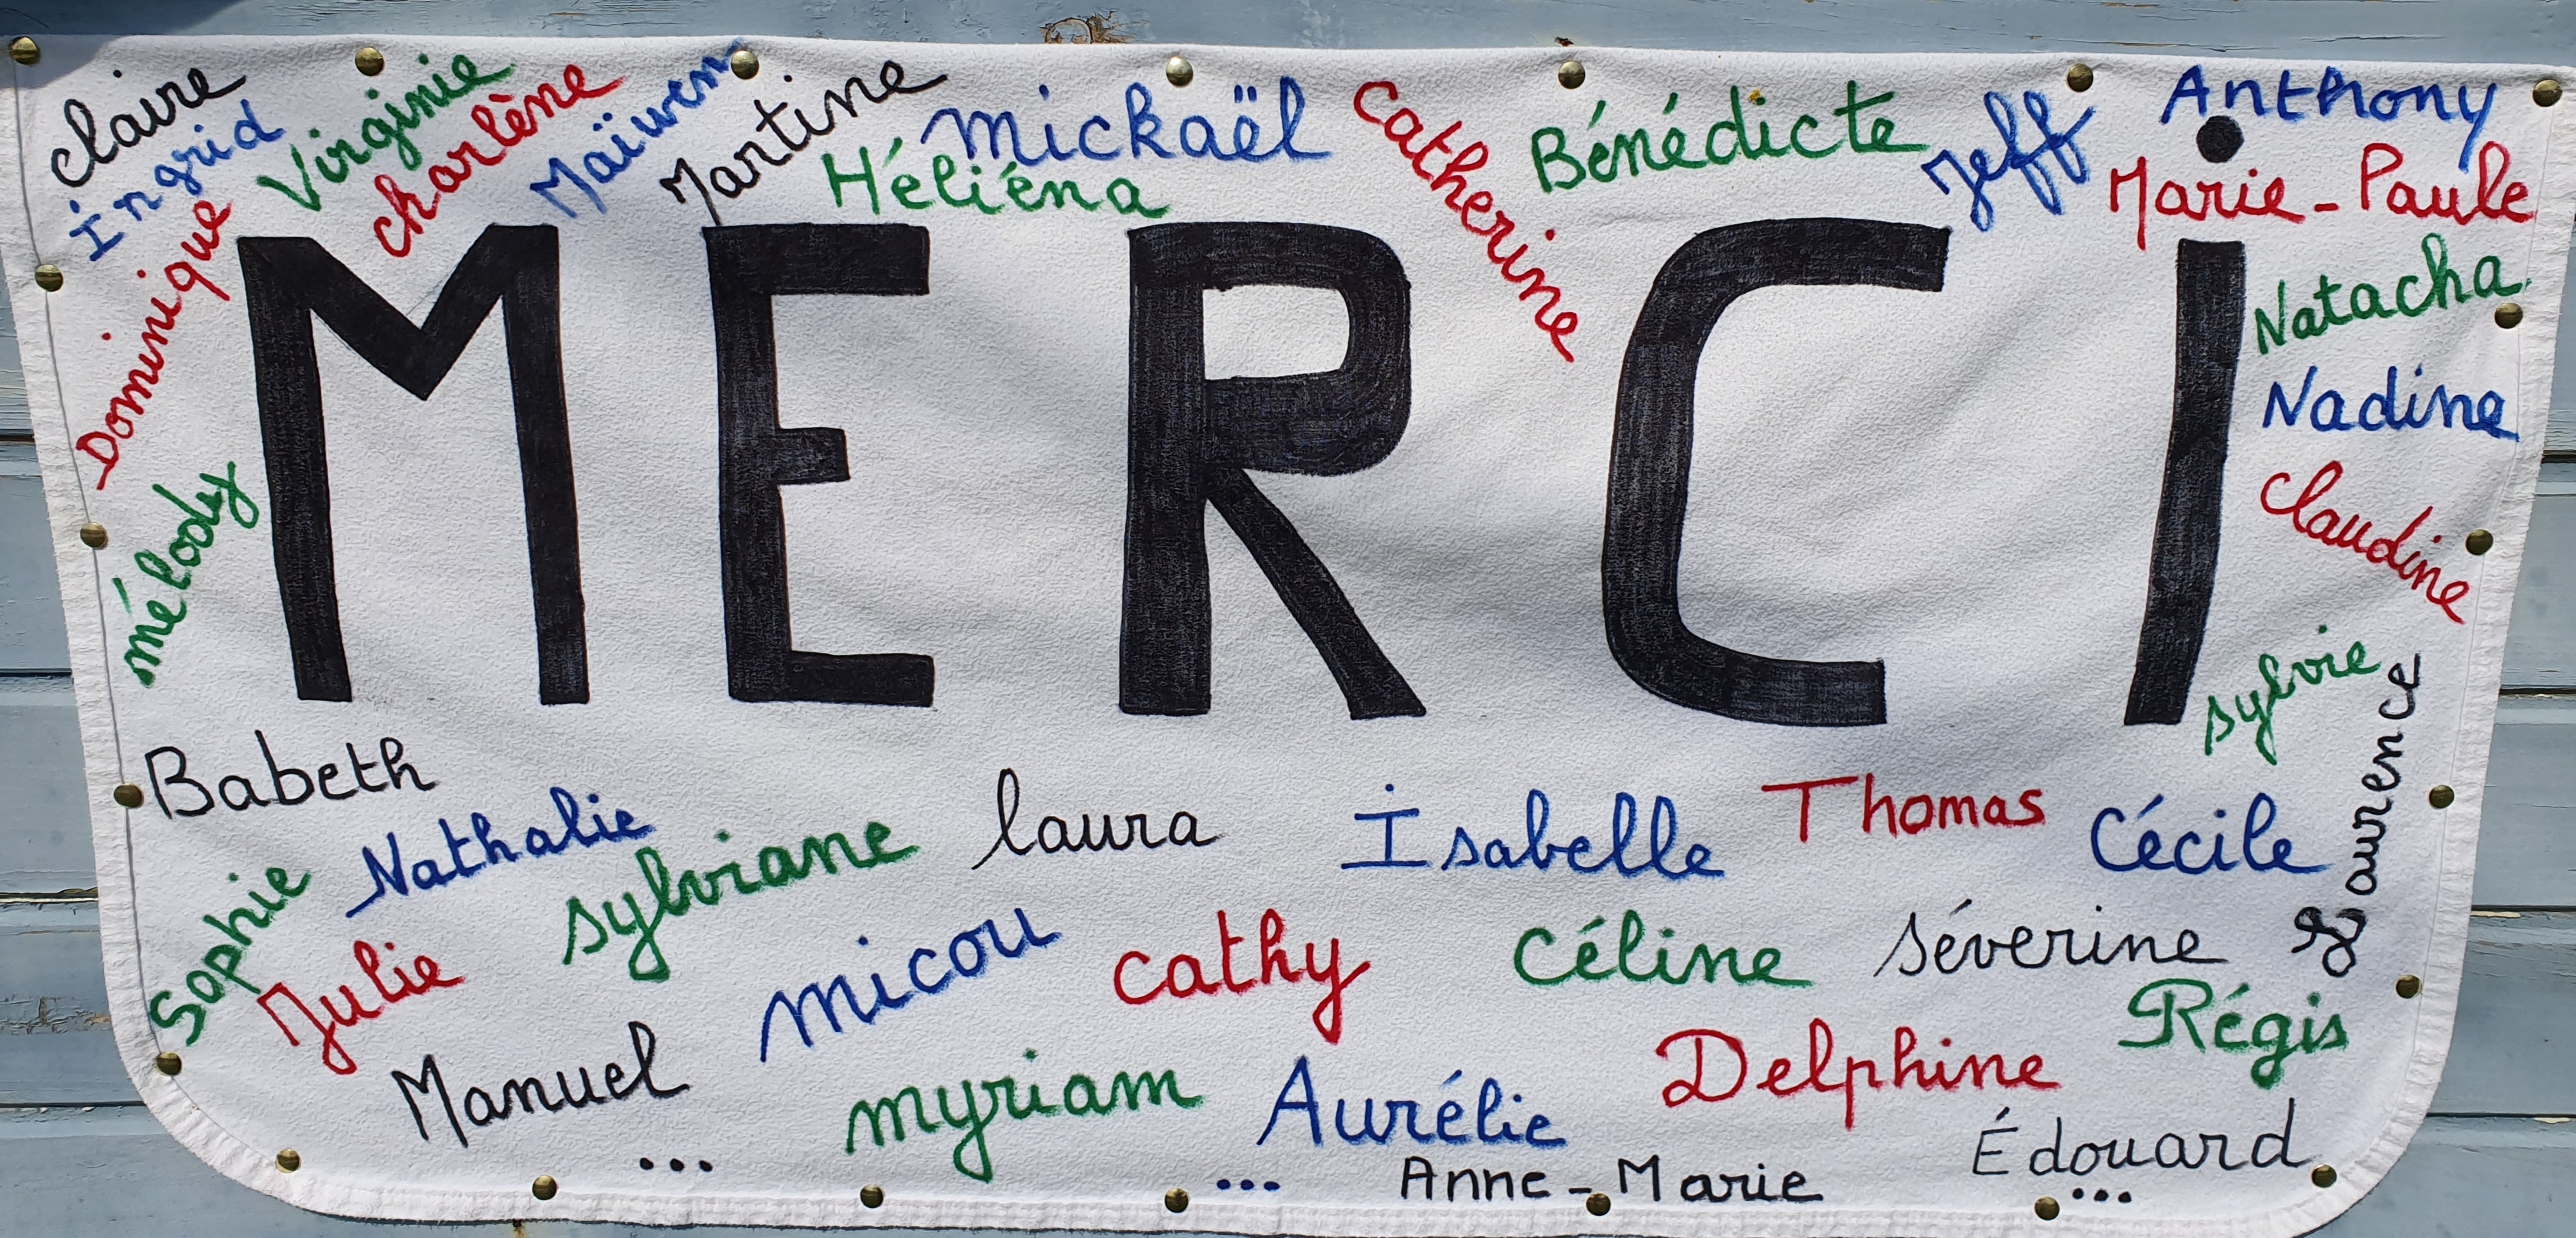 claire
Ingrid
Virginie
charlène
Maïwenn
Martine
mickaël
Héliéna
Catherine
Bénédicte
Jeff
Anthony
Marie-Paule
Dominique
mélody
MERCI
Natacha
Nadine
Claudine
sylvie
Laurence
Babeth
Nathalie
sylviane
laura
Isabelle
Thomas
Cécile
Sophie
Julie
micou
cathy
Céline
séverine
Régis
Manuel
myriam
Aurélie
Delphine
Édouard
...
...
Anne-Marie
...